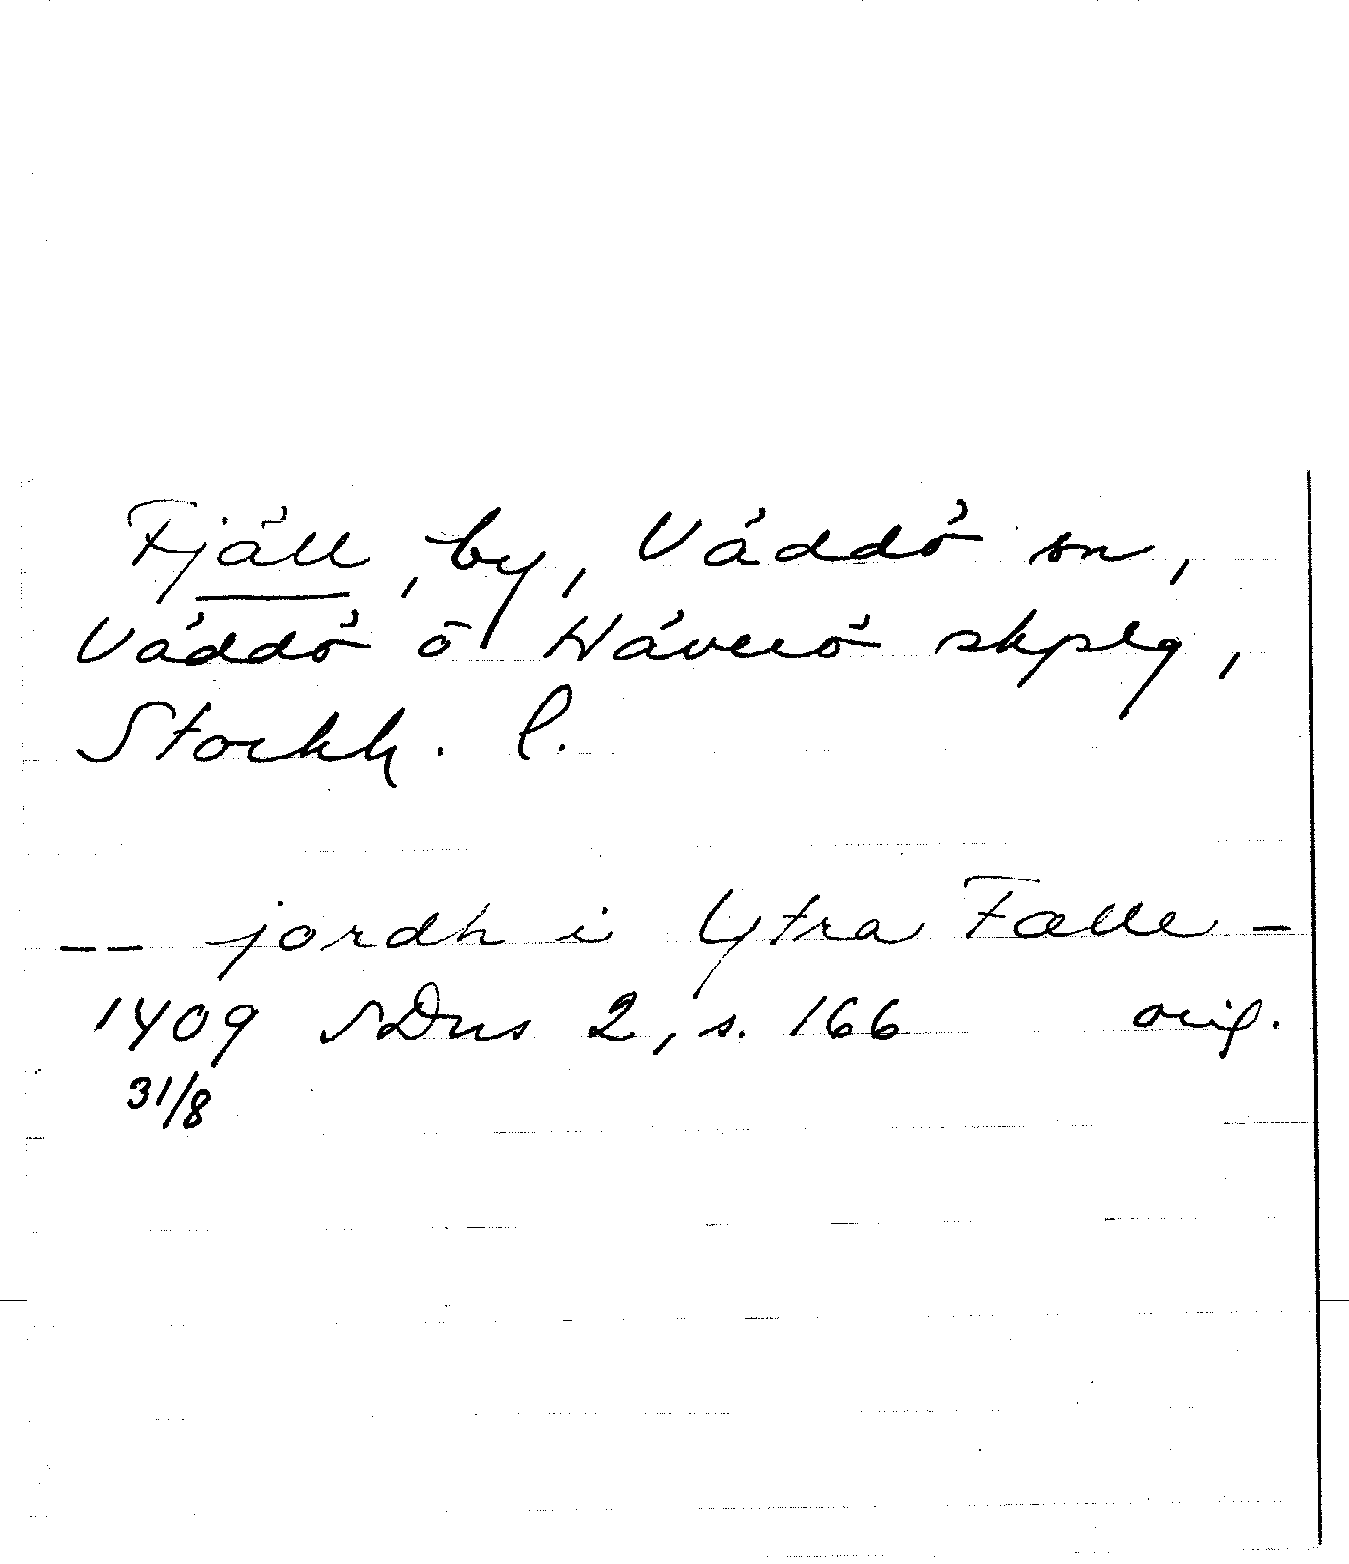 Fjäll, by, Väddö sn,
Väddö o Häverö skplg,
Stockh. l.
-- jordh i Ytra Fælle -
1409 SDns 2, s. 166 orig.
31/8